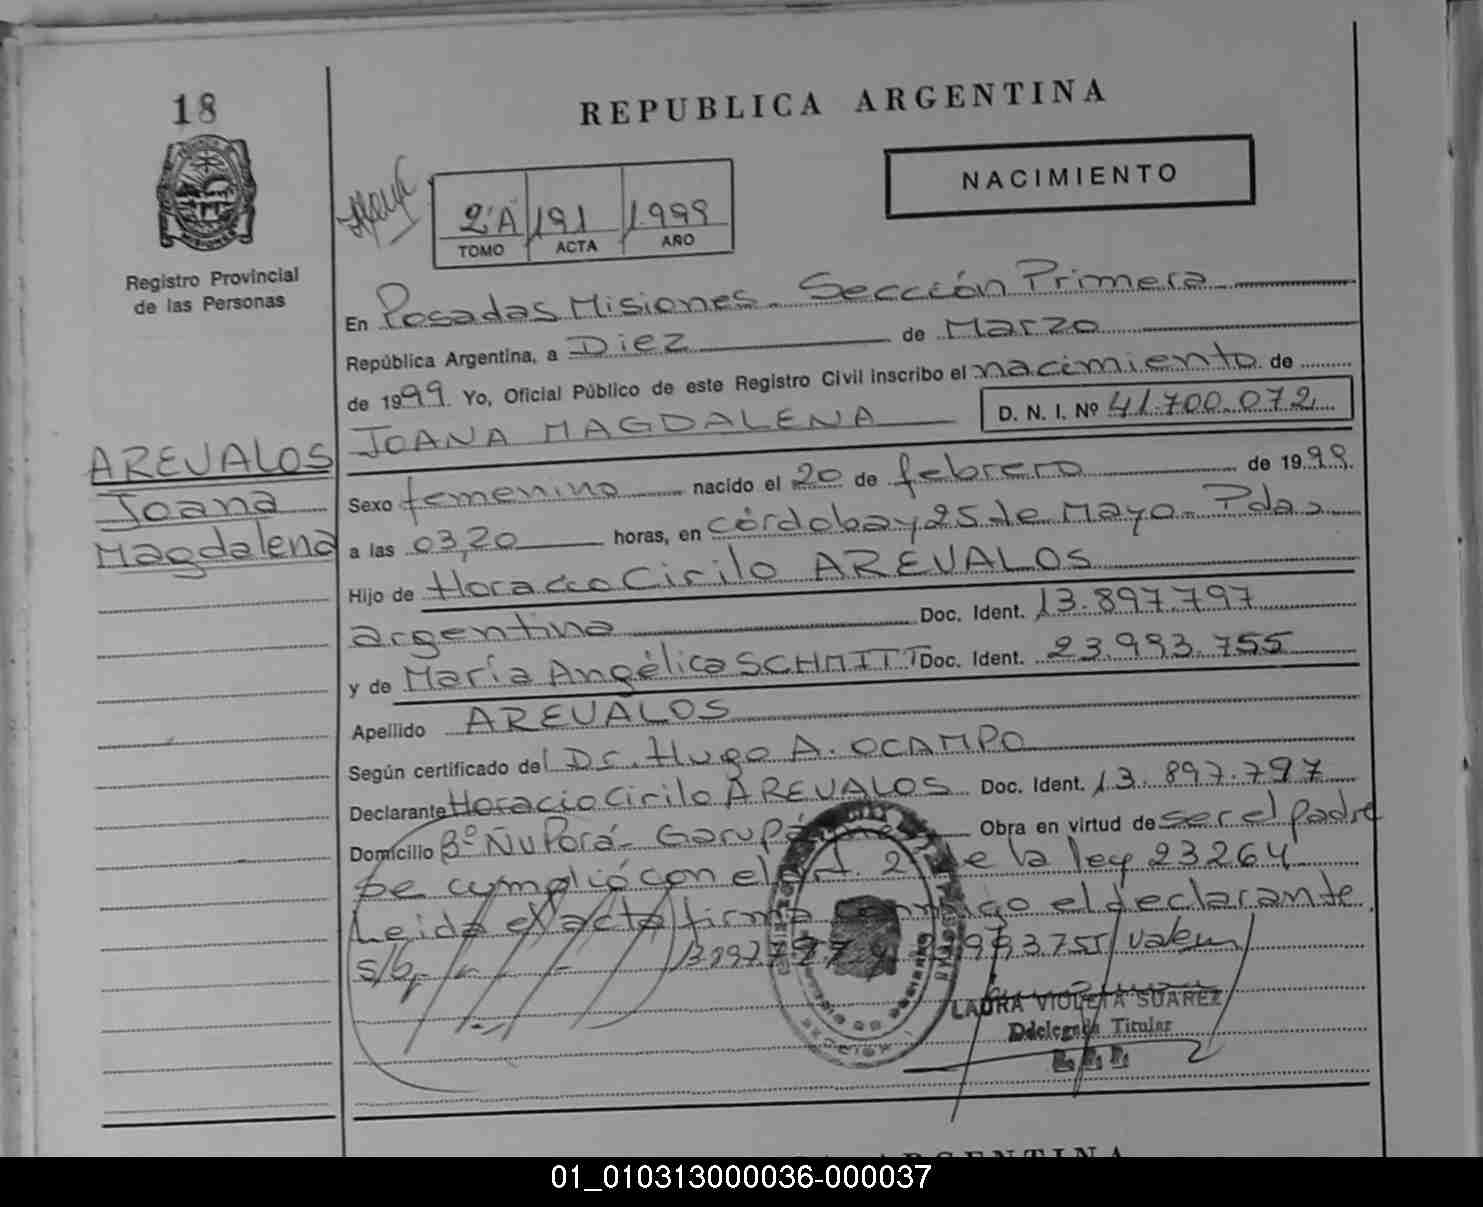 18
REPUBLICA ARGENTINA
NACIMIENTO
2ºA 191 1.999
TOMO ACTA AÑO
Registro Provincial
de las Personas
En Posadas Misiones - Sección Primera
República Argentina, a Diez de Marzo
de 1999. Yo, Oficial Público de este Registro Civil inscribo el nacimiento de
JOANA MAGDALENA D. N. I. Nº 41.700.072
AREVALOS
Joana
Magdalena
Sexo femenino nacido el 20 de febrero de 1999.
a las 03,20 horas, en córdoba y 25 de Mayo - Pdas
Hijo de Horacio Cirilo AREVALOS
argentino Doc. Ident. 13.897.797
y de María Angélica SCHMITT Doc. Ident. 23.993.755
Apellido AREVALOS
Según certificado del Dr. Hugo A. OCAMPO
Declarante Horacio Cirilo AREVALOS Doc. Ident. 13.897.797
Domicilio Bº Ñu Porá - Garupá Obra en virtud de ser el padre
Se cumplió con el art. 2 de la ley 23264
Leida el acta firma conmigo el declarante.
s/b 13897797 y 23993.755/Valen/
LAURA VIOLETA SUAREZ
Ddelegada Titular
ARGENTINA
01_010313000036-000037